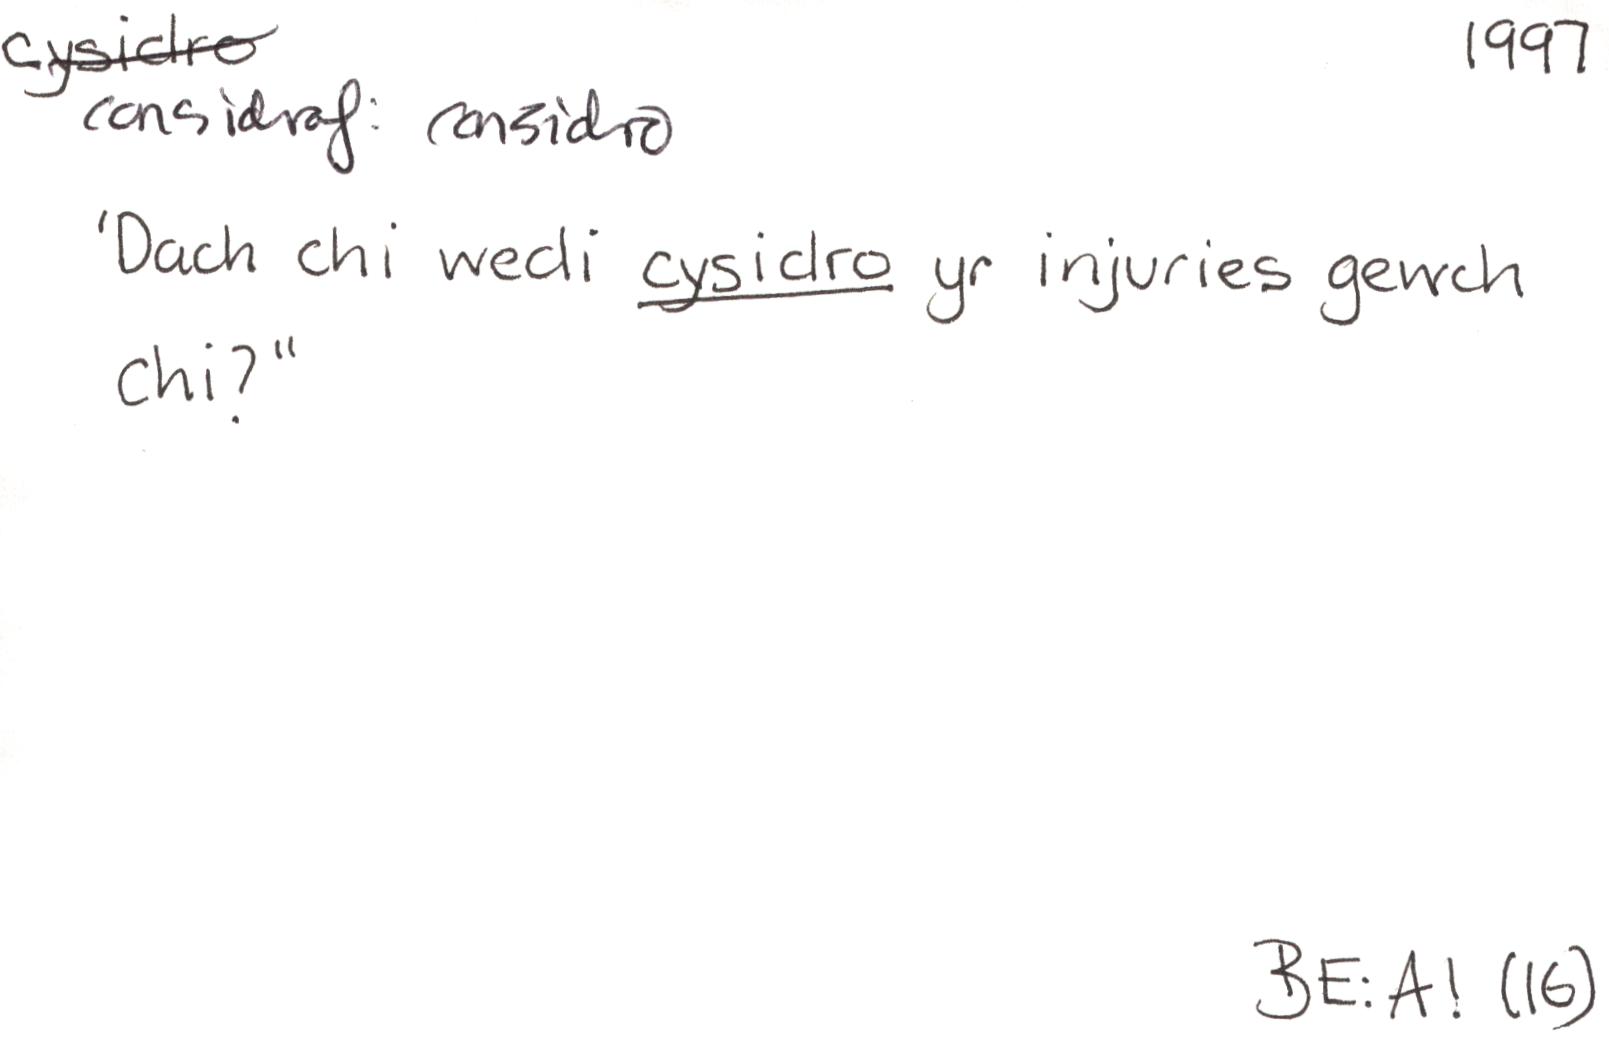 cysidro 1997
considraf: considro
'Dach chi wedi cysidro yr injuries gewch
chi?"
BE: A! (16)